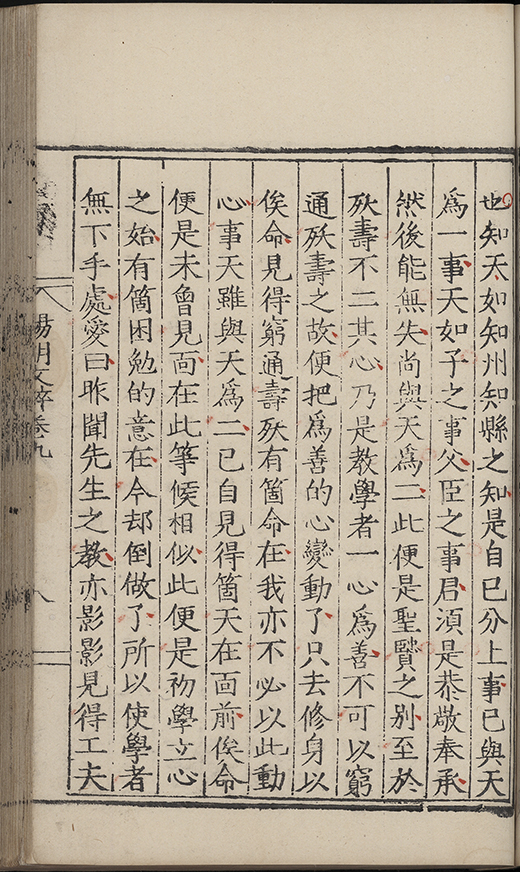 也知天如知州知縣之知是自已分上事已與天
爲一事天如子之事父臣之事君湏是恭敬奉承
然後能無失尚與天爲二此便是聖賢之别至於
殀壽不二其心乃是教學者一心爲善不可以窮
通殀壽之故便把爲善的心變動了只去修身以
俟命見得窮通壽殀有箇命在我亦不必以此動
心事天雖與天爲二已自見得箇天在面前俟命
便是未曾見面在此等候相似此便是初學立心
之始有箇困勉的意在今却倒做了所以使學者
無下手處愛曰昨聞先生之教亦影影見得工夫
陽明文粹卷九
八